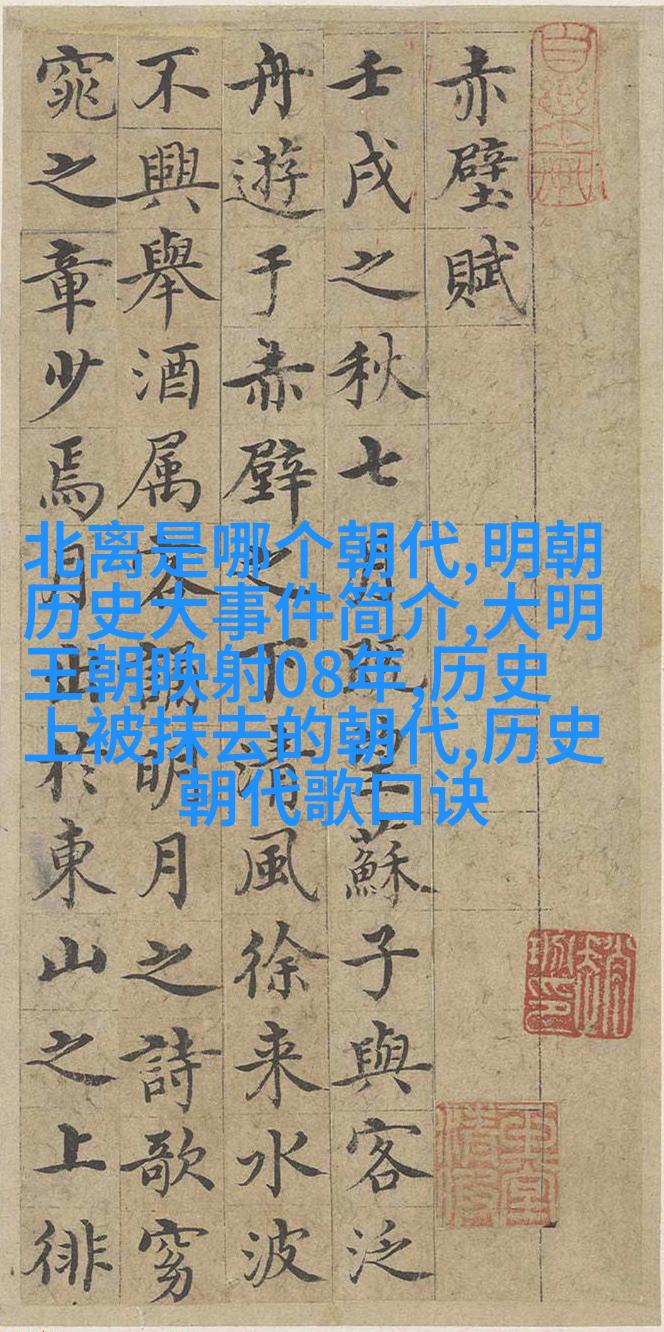 赤壁賦
壬戌之秋七月既望蘇子與客泛
舟遊于赤壁之下清風徐来水波
不興舉酒属客誦明月之詩歌窈
窕之章少焉月出於東山之上徘
北离是哪个朝代,明朝
历史大事件简介,大明
王朝映射08年,历史
上被抹去的朝代,历史
朝代歌口诀